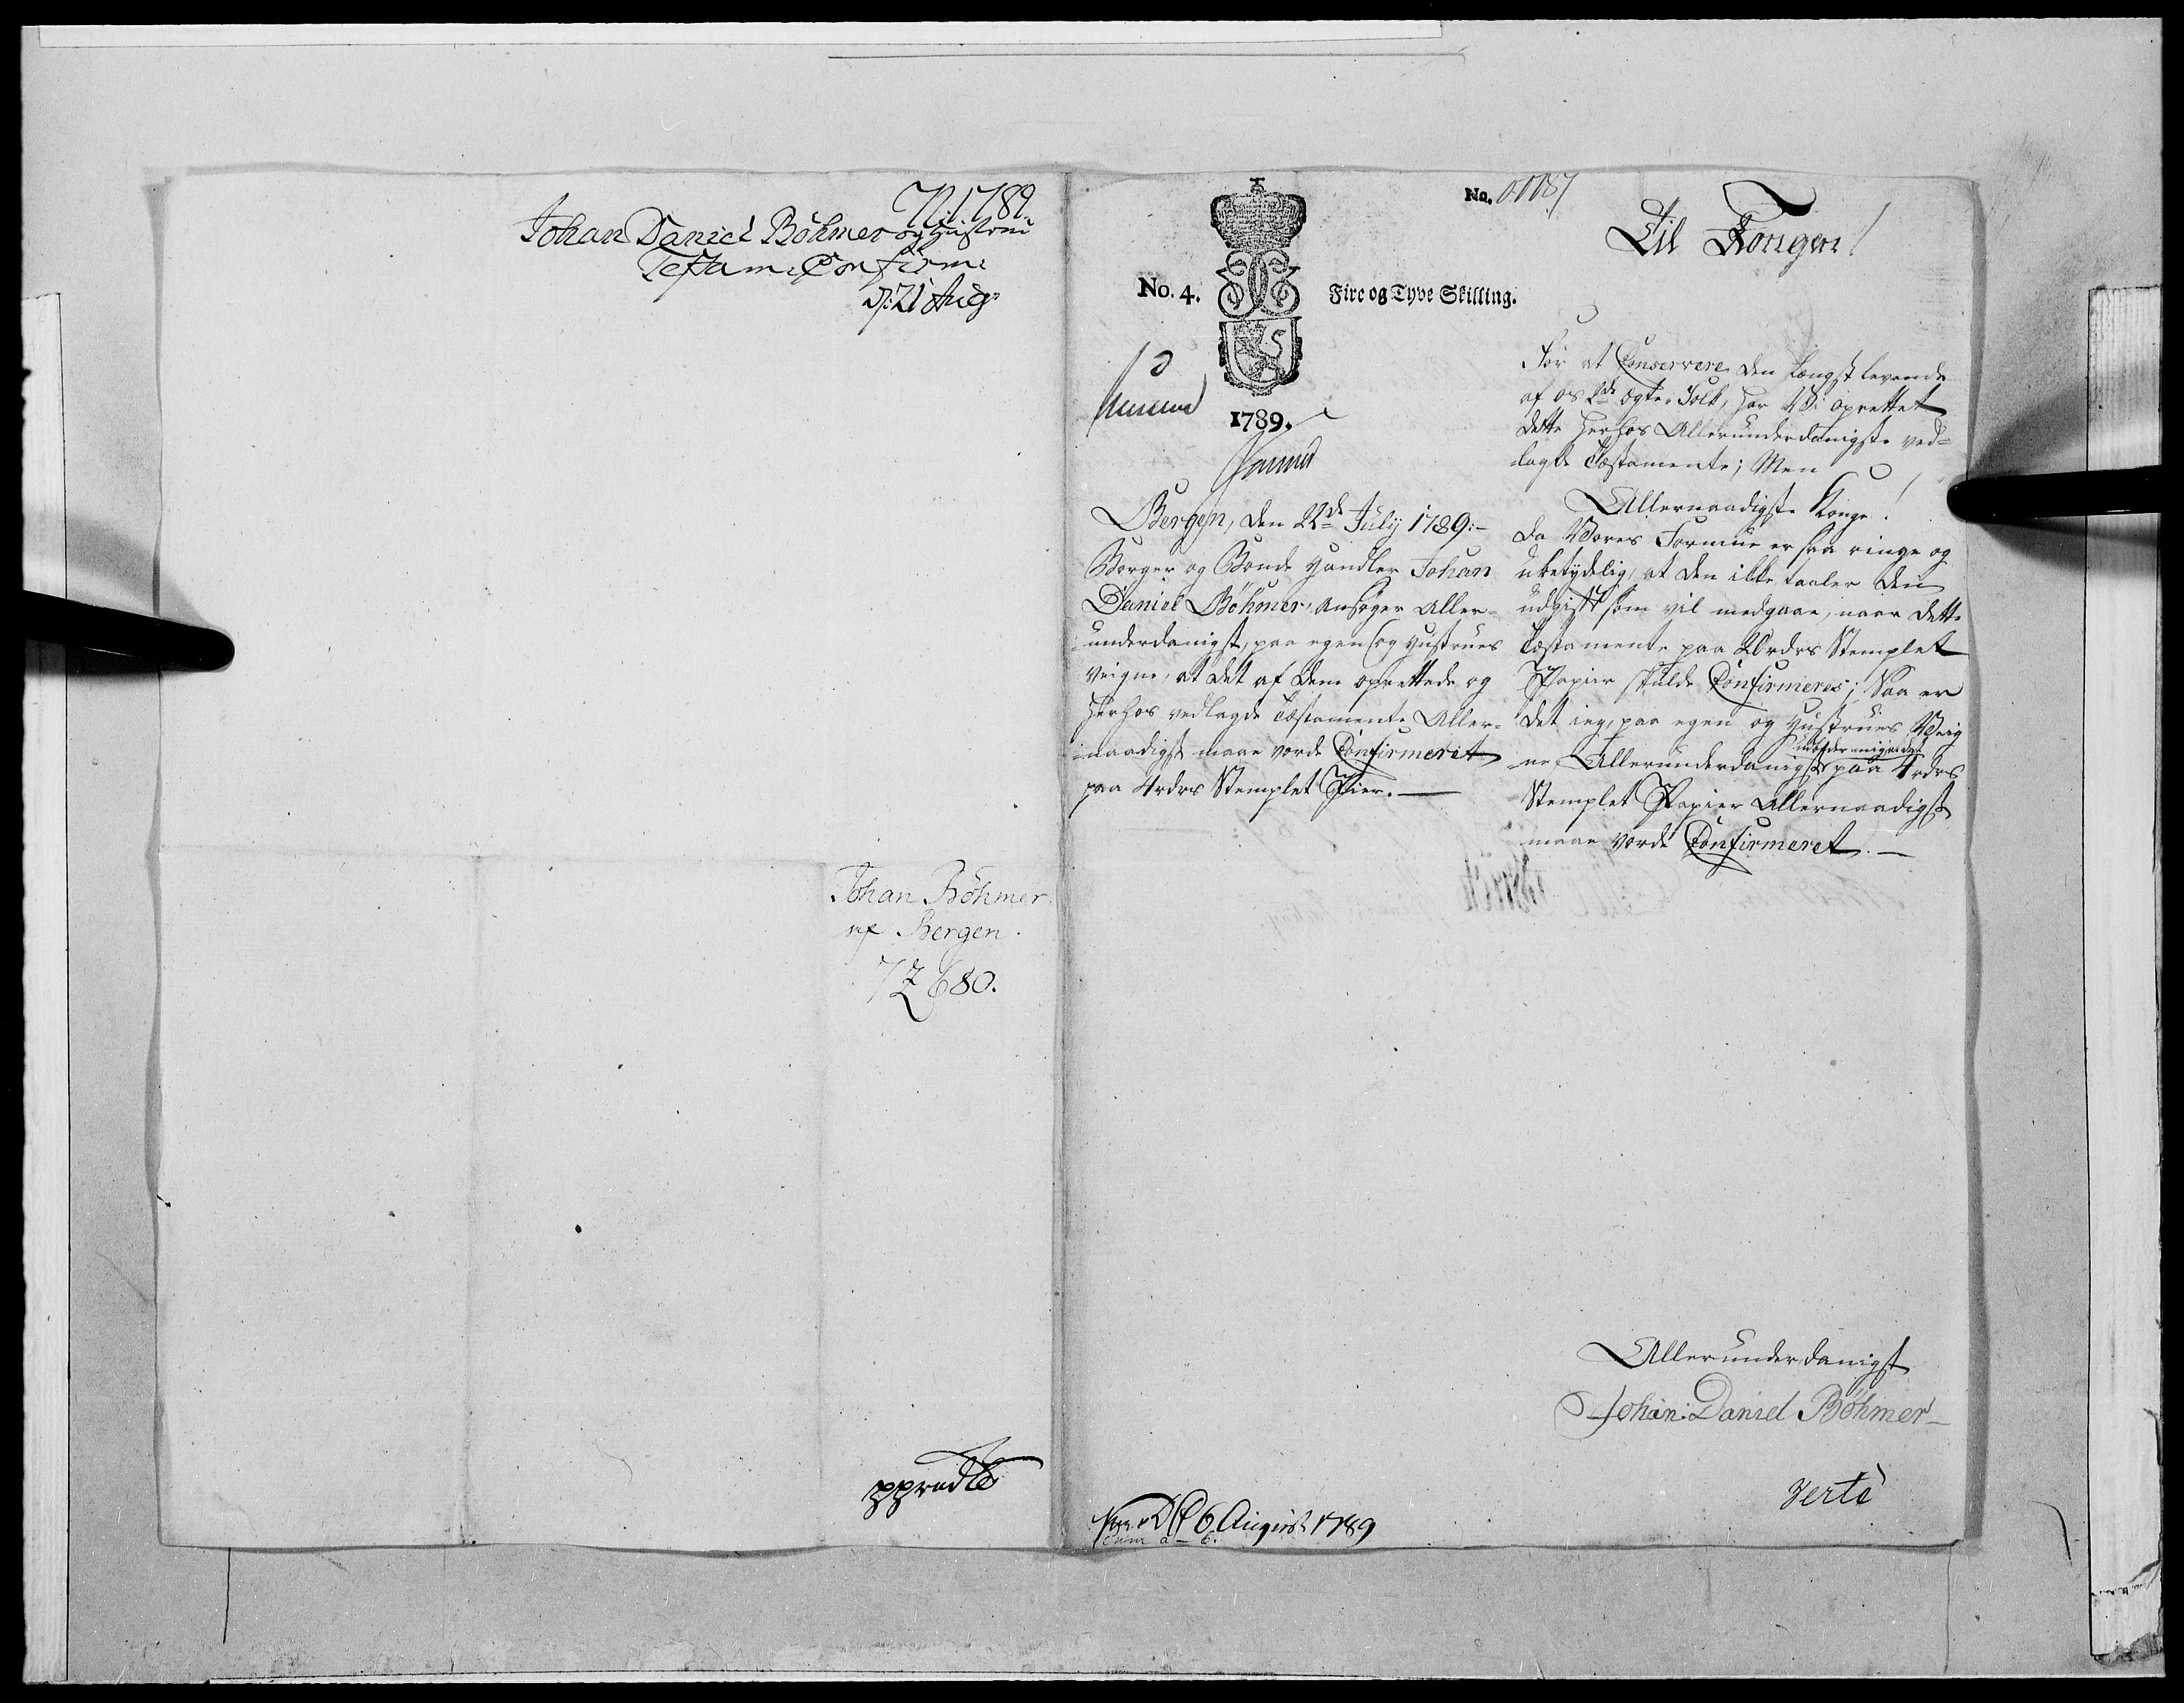 N: 1789.
Johan Daniel Böhmer og Hustrue
Testam: Confirm:
D: 21 Aug:
Johan Böhmer
af Bergen.
72 680.
No. 4.
Fire og Tyve Skilling.
1789.
No.
Til Kongen!
Bergen, den 22de July 1789:-
Borger og Bonde Handler Johan
Daniel Böhmer, Ansøger Aller-
underdanigst, paa egen og Hustrues
Veigne, at det af dem oprettede og
herhos vedlagde Testamente Aller-
naadigst maae vorde Confirmeret
paa 4rdrs Stemplet Pier.
For at Conservere den længst levende
af os 2de ægte-Folk, har Vi oprettet
dette herhos Allerunderdanigst ved=
lagde Testamente; Men
Allernaadigste Konge!
da Vores Formue er saa ringe og
ubetydelig, at den ikke taaler den
udgift som vil medgaae, naar dette
Testamente paa 20rdrs Stemplet
Papier skulde Confirmeres; Saa er
det ieg, paa egen og Hustrues Veig
ne, Allerunderdanigst paa 4rdrs
Stemplet Papier Allernaadigst
maae vorde Confirmeret.
Allerunderdanigst
Johan Daniel Böhmer
verte
6 August 1789